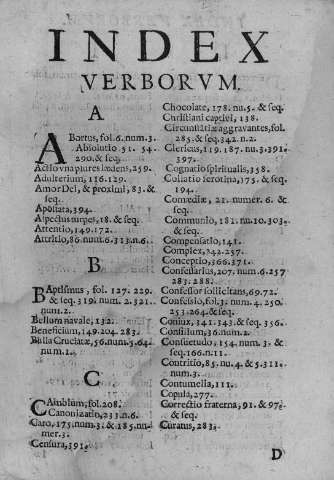 INDEX
VERBORVM.
A
ABortus, fol. 6. num. 3.
Absolutio 51. 54.
290. & seq.
Actio vna plures lædens, 259.
Adulterium, 116. 129.
Amor Dei, & proximi, 83. &
seq.
Apostata, 394.
Aspectus turpes, 18. & seq.
Attentio, 149. 172.
Attritio, 86. num. 6. 313. n. 6.
B
BAptismus, fol. 127. 229.
& seq. 319. num. 2. 321.
num. 2.
Bellum navale, 132.
Beneficium, 149. 204. 283.
Bulla Cruciatæ, 56. num. 5. 64.
num. 1.
C
CAmbium, fol. 208.
Canonizatio, 233. n. 6.
Caro, 175. num. 3. & 185. nu-
mer. 3.
Censura, 391.
Chocolate, 178. nu. 5. & seq.
Christiani captivi, 138.
Circumstātiæ aggravantes, fol.
285. & seq. 342. n. 2.
Clericus, 119. 187. nu. 3. 391.
397.
Cognatio spiritualis, 358.
Collatio serotina, 175. & seq.
194.
Comœdiæ, 21. numer. 6. &
seq.
Communio, 182. nu. 10. 303.
& seq.
Compensatio, 141.
Complex, 242. 257.
Conceptio, 366. 371.
Confessarius, 207. num. 6. 257
283. 288.
Confessor sollicitans, 69. 72.
Confessio, fol. 3. num. 4. 250.
253. 264. & seq.
Coniux, 341. 343. & seq. 356.
Consilium, 36. num. 2.
Consuetudo, 154. num. 3. &
seq. 166. n. 11.
Contritio, 85. nu. 4. & 5. 311.
num. 3.
Contumelia, 111.
Copula, 277.
Correctio fraterna, 91. & 97.
& seq.
Curatus, 283.
D